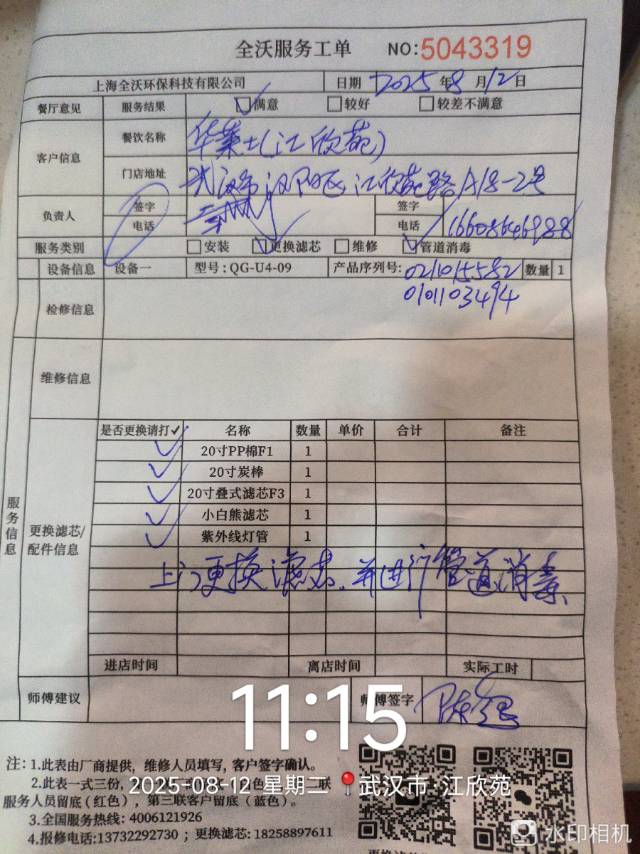 全沃服务工单 NO:5043319
上海全沃环保科技有限公司 日期 2025年8月12日
餐厅意见 服务结果 满意 较好 较差不满意
客户信息 餐饮名称 华莱士(江欣苑)
门店地址 武汉市汉阳区江欣苑路A18-2号
负责人 签字 签字
电话 电话 16608646988
服务类别 安装 更换滤芯 维修 管道消毒
设备信息 设备一 型号:QG-U4-09 产品序列号: 0211015582 数量 1
0101103494
检修信息
维修信息
服务信息
更换滤芯/配件信息
是否更换请打✓ 名称 数量 单价 合计 备注
✓ 20寸PP棉F1 1
✓ 20寸炭棒 1
✓ 20寸叠式滤芯F3 1
✓ 小白熊滤芯 1
✓ 紫外线灯管 1
上门更换滤芯,并进行管道消毒
进店时间 离店时间 实际工时
师傅建议 师傅签字
11:15
2025-08-12 星期二 武汉市·江欣苑
注:1.此表由厂商提供,维修人员填写,客户签字确认。
2.此表一式三份,
服务人员留底(红色),第三联客户留底(蓝色)。
3.全国服务热线:4006121926
4.报修电话:13732292730;更换滤芯:18258897611
水印相机